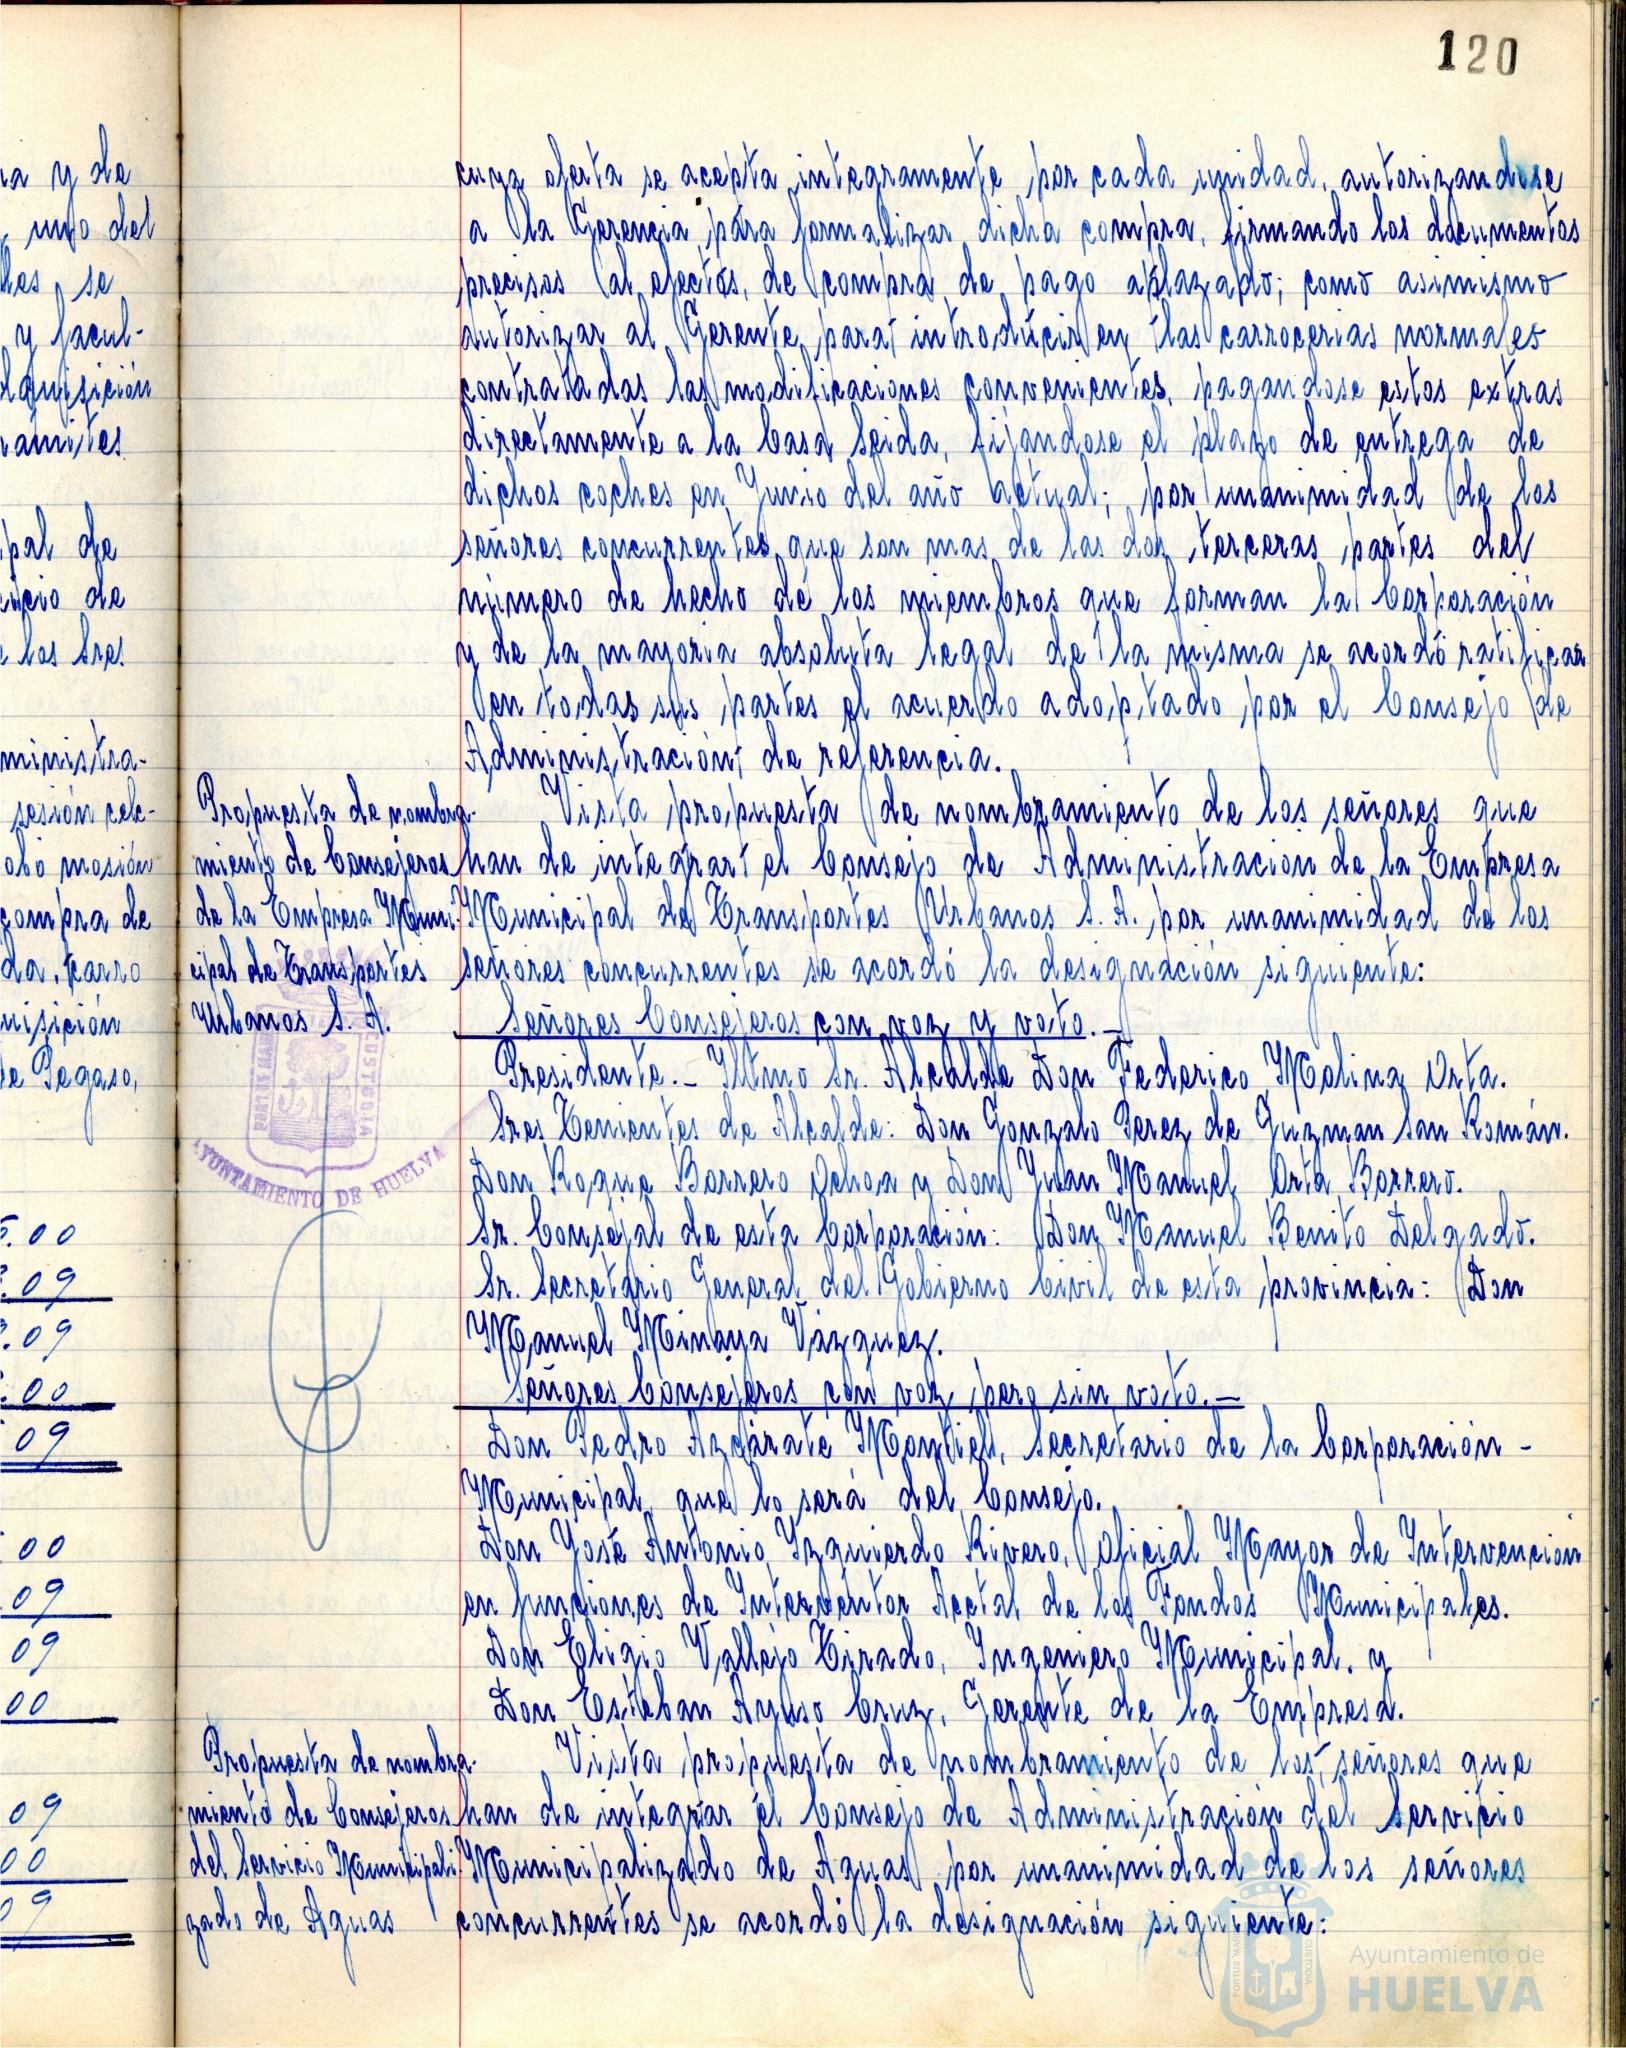 120
na y de
uno del
les se
y facul-
dquisición
rámites
pal de
icio de
e los Sres.
ministra-
sesión cele-
obó moción
compra de
da, carro
uisición
de Pegaso,
5.00
.09
.09
.00
09
.00
.09
09
00
09
00
09
cuya oferta se acepta integramente por cada unidad, autorizandose
a la Gerencia para formalizar dicha compra, firmando los documentos
precisos al efecto, de compra de pago aplazado; como asimismo
autorizar al Gerente para introducir en las carrocerias normales
contratadas las modificaciones convenientes, pagandose estos extras
directamente a la Casa Seida, fijandose el plazo de entrega de
dichos coches en Junio del año actual; por unanimidad de los
señores concurrentes que son mas de las dos terceras partes del
número de hecho de los miembros que forman la Corporación
y de la mayoria absoluta legal de la misma se acordó ratificar
en todas sus partes el acuerdo adoptado por el Consejo de
Administración de referencia.
Propuesta de nombra-
miento de Consejeros
de la Empresa Muni-
cipal de Transportes
Urbanos S. A.
Vista propuesta de nombramiento de los señores que
han de integrar el Consejo de Administración de la Empresa
Municipal de Transportes Urbanos S. A. por unanimidad de los
señores concurrentes se acordó la designación siguiente:
Señores Consejeros con voz y voto.-
Presidente.- Iltmo Sr. Alcalde Don Federico Molina Orta.
Sres Tenientes de Alcalde: Don Gonzalo Perez de Guzman San Román.
Don Roque Barrero Ochoa y Don Juan Manuel Orta Borrero.
Sr. Consejal de esta Corporación: Don Manuel Benito Delgado.
Sr. Secretario General del Gobierno Civil de esta provincia: Don
Manuel Minaya Vázquez.
Señores Consejeros con voz pero sin voto.-
Don Pedro Azcárate Montiel, Secretario de la Corporación -
Municipal que lo será del Consejo.
Don José Antonio Izquierdo Rivero, Oficial Mayor de Intervención
en funciones de Interventor Acctal de los Fondos Municipales.
Don Eligio Vallejo Tirado, Ingeniero Municipal. y
Don Esteban Ayuso Cruz, Gerente de la Empresa.
Propuesta de nombra-
miento de Consejeros
del Servicio Municipali-
zado de Aguas
Vista propuesta de nombramiento de los señores que
han de integrar el Consejo de Administración del Servicio
Municipalizado de Aguas por unanimidad de los señores
concurrentes se acordó la designación siguiente:
AYUNTAMIENTO DE HUELVA
Ayuntamiento de
HUELVA